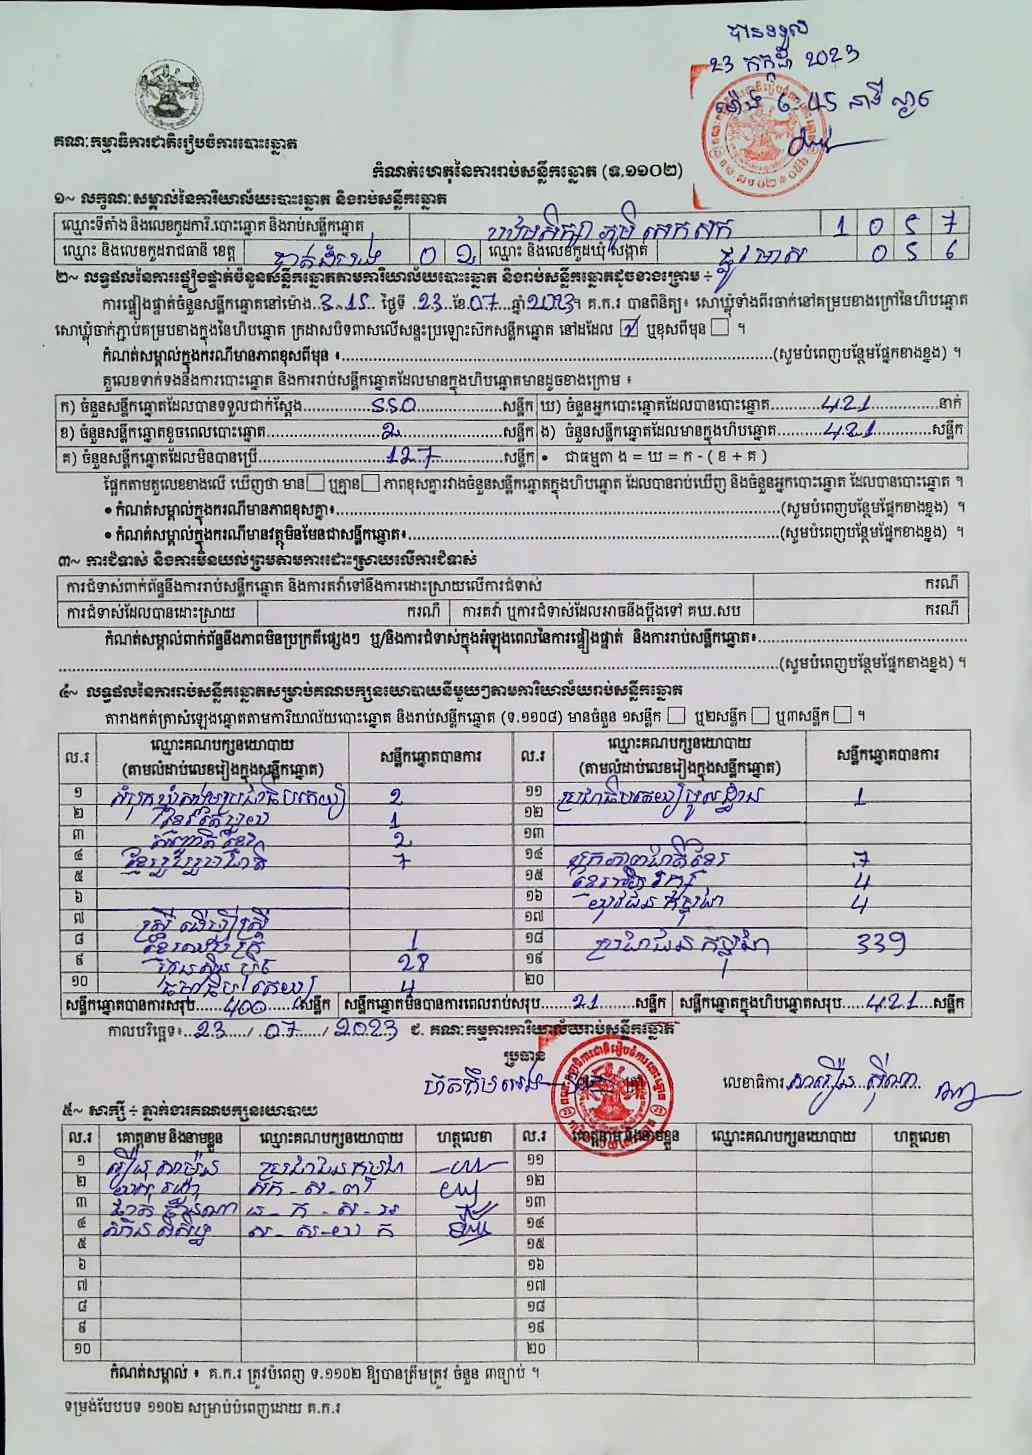 បានទទួល
23 កក្កដា 2023
ម៉ោង 6:45 នាទី ល្ងាច
គណៈកម្មាធិការជាតិរៀបចំការបោះឆ្នោត
កំណត់ហេតុនៃការរាប់សន្លឹកឆ្នោត (ទ.១១០២)
១~ លក្ខណៈសម្គាល់នៃការិយាល័យបោះឆ្នោត និងរាប់សន្លឹកឆ្នោត
ឈ្មោះទីតាំង និងលេខកូដការិ.បោះឆ្នោត និងរាប់សន្លឹកឆ្នោត 1 0 5 7
ឈ្មោះ និងលេខកូដរាជធានី ខេត្ត បាត់ដំបង 0 2 ឈ្មោះ និងលេខកូដឃុំ សង្កាត់ 0 5 6
២~ លទ្ធផលនៃការផ្ទៀងផ្ទាត់ចំនួនសន្លឹកឆ្នោតតាមការិយាល័យបោះឆ្នោត និងរាប់សន្លឹកឆ្នោតដូចខាងក្រោម ÷
ការផ្ទៀងផ្ទាត់ចំនួនសន្លឹកឆ្នោតនៅម៉ោង 3:15 ថ្ងៃទី 23 ខែ 07 ឆ្នាំ 2023។ គ.ក.រ បានពិនិត្យ៖ សោឃ្លុំទាំងពីរចាក់នៅគម្របខាងក្រៅនៃហិបឆ្នោត
សោឃ្លុំចាក់ភ្ជាប់គម្របខាងក្នុងនៃហិបឆ្នោត ក្រដាសបិទពាសលើសន្ទះប្រឡោះស៊កសន្លឹកឆ្នោត នៅដដែល ☑ ឬខុសពីមុន ☐ ។
កំណត់សម្គាល់ក្នុងករណីមានភាពខុសពីមុន ៖ (សូមបំពេញបន្ថែមផ្នែកខាងខ្នង) ។
តួលេខទាក់ទងនឹងការបោះឆ្នោត និងការរាប់សន្លឹកឆ្នោតដែលមានក្នុងហិបឆ្នោតមានដូចខាងក្រោម ៖
ក) ចំនួនសន្លឹកឆ្នោតដែលបានទទួលជាក់ស្តែង 550 សន្លឹក ឃ) ចំនួនអ្នកបោះឆ្នោតដែលបានបោះឆ្នោត 421 នាក់
ខ) ចំនួនសន្លឹកឆ្នោតខូចពេលបោះឆ្នោត 2 សន្លឹក ង) ចំនួនសន្លឹកឆ្នោតដែលមានក្នុងហិបឆ្នោត 421 សន្លឹក
គ) ចំនួនសន្លឹកឆ្នោតដែលមិនបានប្រើ 127 សន្លឹក • ជាធម្មតា ង = ឃ = ក - ( ខ + គ )
ផ្អែកតាមតួលេខខាងលើ ឃើញថា មាន ☐ ឬគ្មាន ☐ ភាពខុសគ្នារវាងចំនួនសន្លឹកឆ្នោតក្នុងហិបឆ្នោត ដែលបានរាប់ឃើញ និងចំនួនអ្នកបោះឆ្នោត ដែលបានបោះឆ្នោត ។
• កំណត់សម្គាល់ក្នុងករណីមានភាពខុសគ្នា៖ (សូមបំពេញបន្ថែមផ្នែកខាងខ្នង) ។
• កំណត់សម្គាល់ក្នុងករណីមានវត្ថុមិនមែនជាសន្លឹកឆ្នោត៖ (សូមបំពេញបន្ថែមផ្នែកខាងខ្នង) ។
៣~ ការជំទាស់ និងការមិនយល់ព្រមតាមការដោះស្រាយលើការជំទាស់
ការជំទាស់ពាក់ព័ន្ធនឹងការរាប់សន្លឹកឆ្នោត និងការតវ៉ាទៅនឹងការដោះស្រាយលើការជំទាស់ ករណី
ការជំទាស់ដែលបានដោះស្រាយ ករណី ការតវ៉ា ឬការជំទាស់ដែលអាចនឹងប្តឹងទៅ គឃ.សប ករណី
កំណត់សម្គាល់ពាក់ព័ន្ធនឹងភាពមិនប្រក្រតីផ្សេងៗ ឬ/និងការជំទាស់ក្នុងអំឡុងពេលនៃការផ្ទៀងផ្ទាត់ និងការរាប់សន្លឹកឆ្នោត៖
(សូមបំពេញបន្ថែមផ្នែកខាងខ្នង) ។
៤~ លទ្ធផលនៃការរាប់សន្លឹកឆ្នោតសម្រាប់គណបក្សនយោបាយនីមួយៗតាមការិយាល័យរាប់សន្លឹកឆ្នោត
តារាងកត់ត្រាសំឡេងឆ្នោតតាមការិយាល័យបោះឆ្នោត និងរាប់សន្លឹកឆ្នោត (ទ.១១០៨) មានចំនួន ១សន្លឹក ☐ ឬ២សន្លឹក ☐ ឬ៣សន្លឹក ☐ ។
ល.រ ឈ្មោះគណបក្សនយោបាយ (តាមលំដាប់លេខរៀងក្នុងសន្លឹកឆ្នោត) សន្លឹកឆ្នោតបានការ ល.រ ឈ្មោះគណបក្សនយោបាយ (តាមលំដាប់លេខរៀងក្នុងសន្លឹកឆ្នោត) សន្លឹកឆ្នោតបានការ
១ សំបុកឃ្មុំសង្គមប្រជាធិបតេយ្យ 2 ១១ ប្រជាធិបតេយ្យមូលដ្ឋាន 1
២ ខ្មែររួបរួម 1 ១២
៣ 2 ១៣
៤ ខ្មែររួបរួមជាតិ 7 ១៤ ឯកភាពជាតិខ្មែរ 7
៥ ១៥ ខ្មែរអភិរក្ស 4
៦ ១៦ យុវជនកម្ពុជា 4
៧ ស្ត្រីដើម្បីស្ត្រី ១៧
៨ 1 ១៨ ប្រជាជនកម្ពុជា 339
៩ ហ្វ៊ុនស៊ិនប៉ិច 28 ១៩
១០ 4 ២០
សន្លឹកឆ្នោតបានការសរុប 400 សន្លឹក សន្លឹកឆ្នោតមិនបានការពេលរាប់សរុប 21 សន្លឹក សន្លឹកឆ្នោតក្នុងហិបឆ្នោតសរុប 421 សន្លឹក
កាលបរិច្ឆេទ៖ 23 / 07 / 2023 ជ. គណៈកម្មការការិយាល័យរាប់សន្លឹកឆ្នោត
ប្រធាន
លេខាធិការ
៥~ សាក្សី ÷ ភ្នាក់ងារគណបក្សនយោបាយ
ល.រ គោត្តនាម និងនាមខ្លួន ឈ្មោះគណបក្សនយោបាយ ហត្ថលេខា ល.រ គោត្តនាម និងនាមខ្លួន ឈ្មោះគណបក្សនយោបាយ ហត្ថលេខា
១ ប្រជាជនកម្ពុជា ១១
២ ១២
៣ ១៣
៤ ១៤
៥ ១៥
៦ ១៦
៧ ១៧
៨ ១៨
៩ ១៩
១០ ២០
កំណត់សម្គាល់ ៖ គ.ក.រ ត្រូវបំពេញ ទ.១១០២ ឱ្យបានត្រឹមត្រូវ ចំនួន ៣ច្បាប់ ។
ទម្រង់បែបបទ ១១០២ សម្រាប់បំពេញដោយ គ.ក.រ